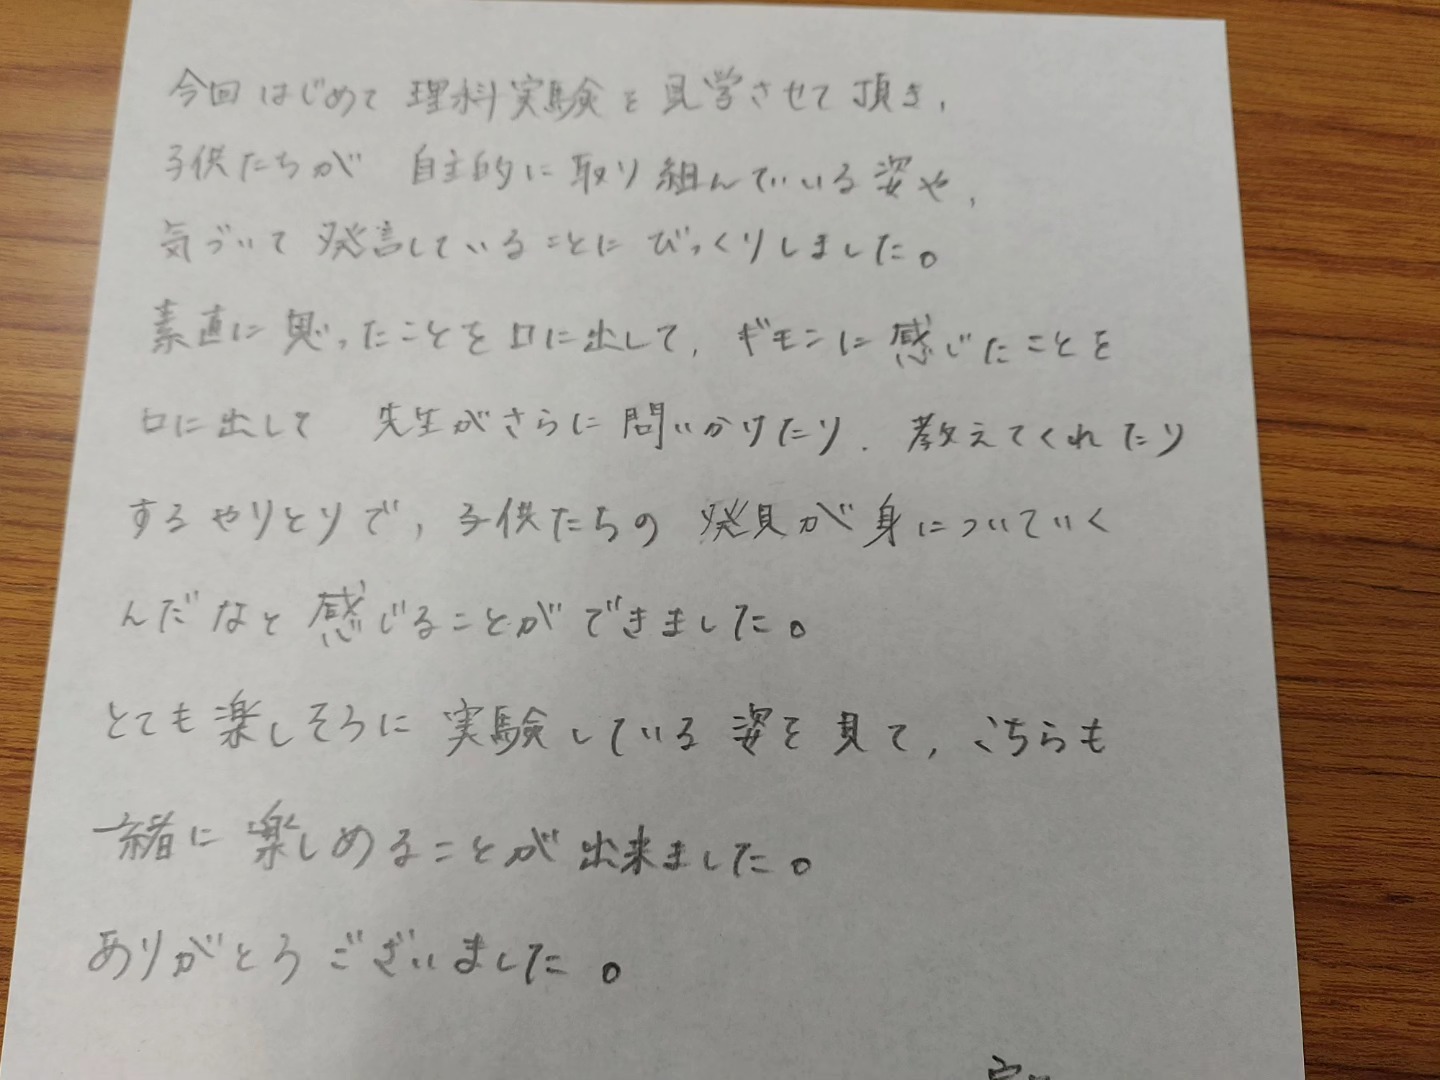 今回はじめて理科実験を見学させて頂き、
子供たちが 自主的に取り組んでいる姿や、
気づいて発言していることにびっくりしました。
素直に思ったことを口に出して、ギモンに感じたことを
口に出して 先生がさらに問いかけたり、教えてくれたり
するやりとりで、子供たちの発見が身についていく
んだなと感じることができました。
とても楽しそうに実験している姿を見て、こちらも
一緒に楽しめることが出来ました。
ありがとうございました。